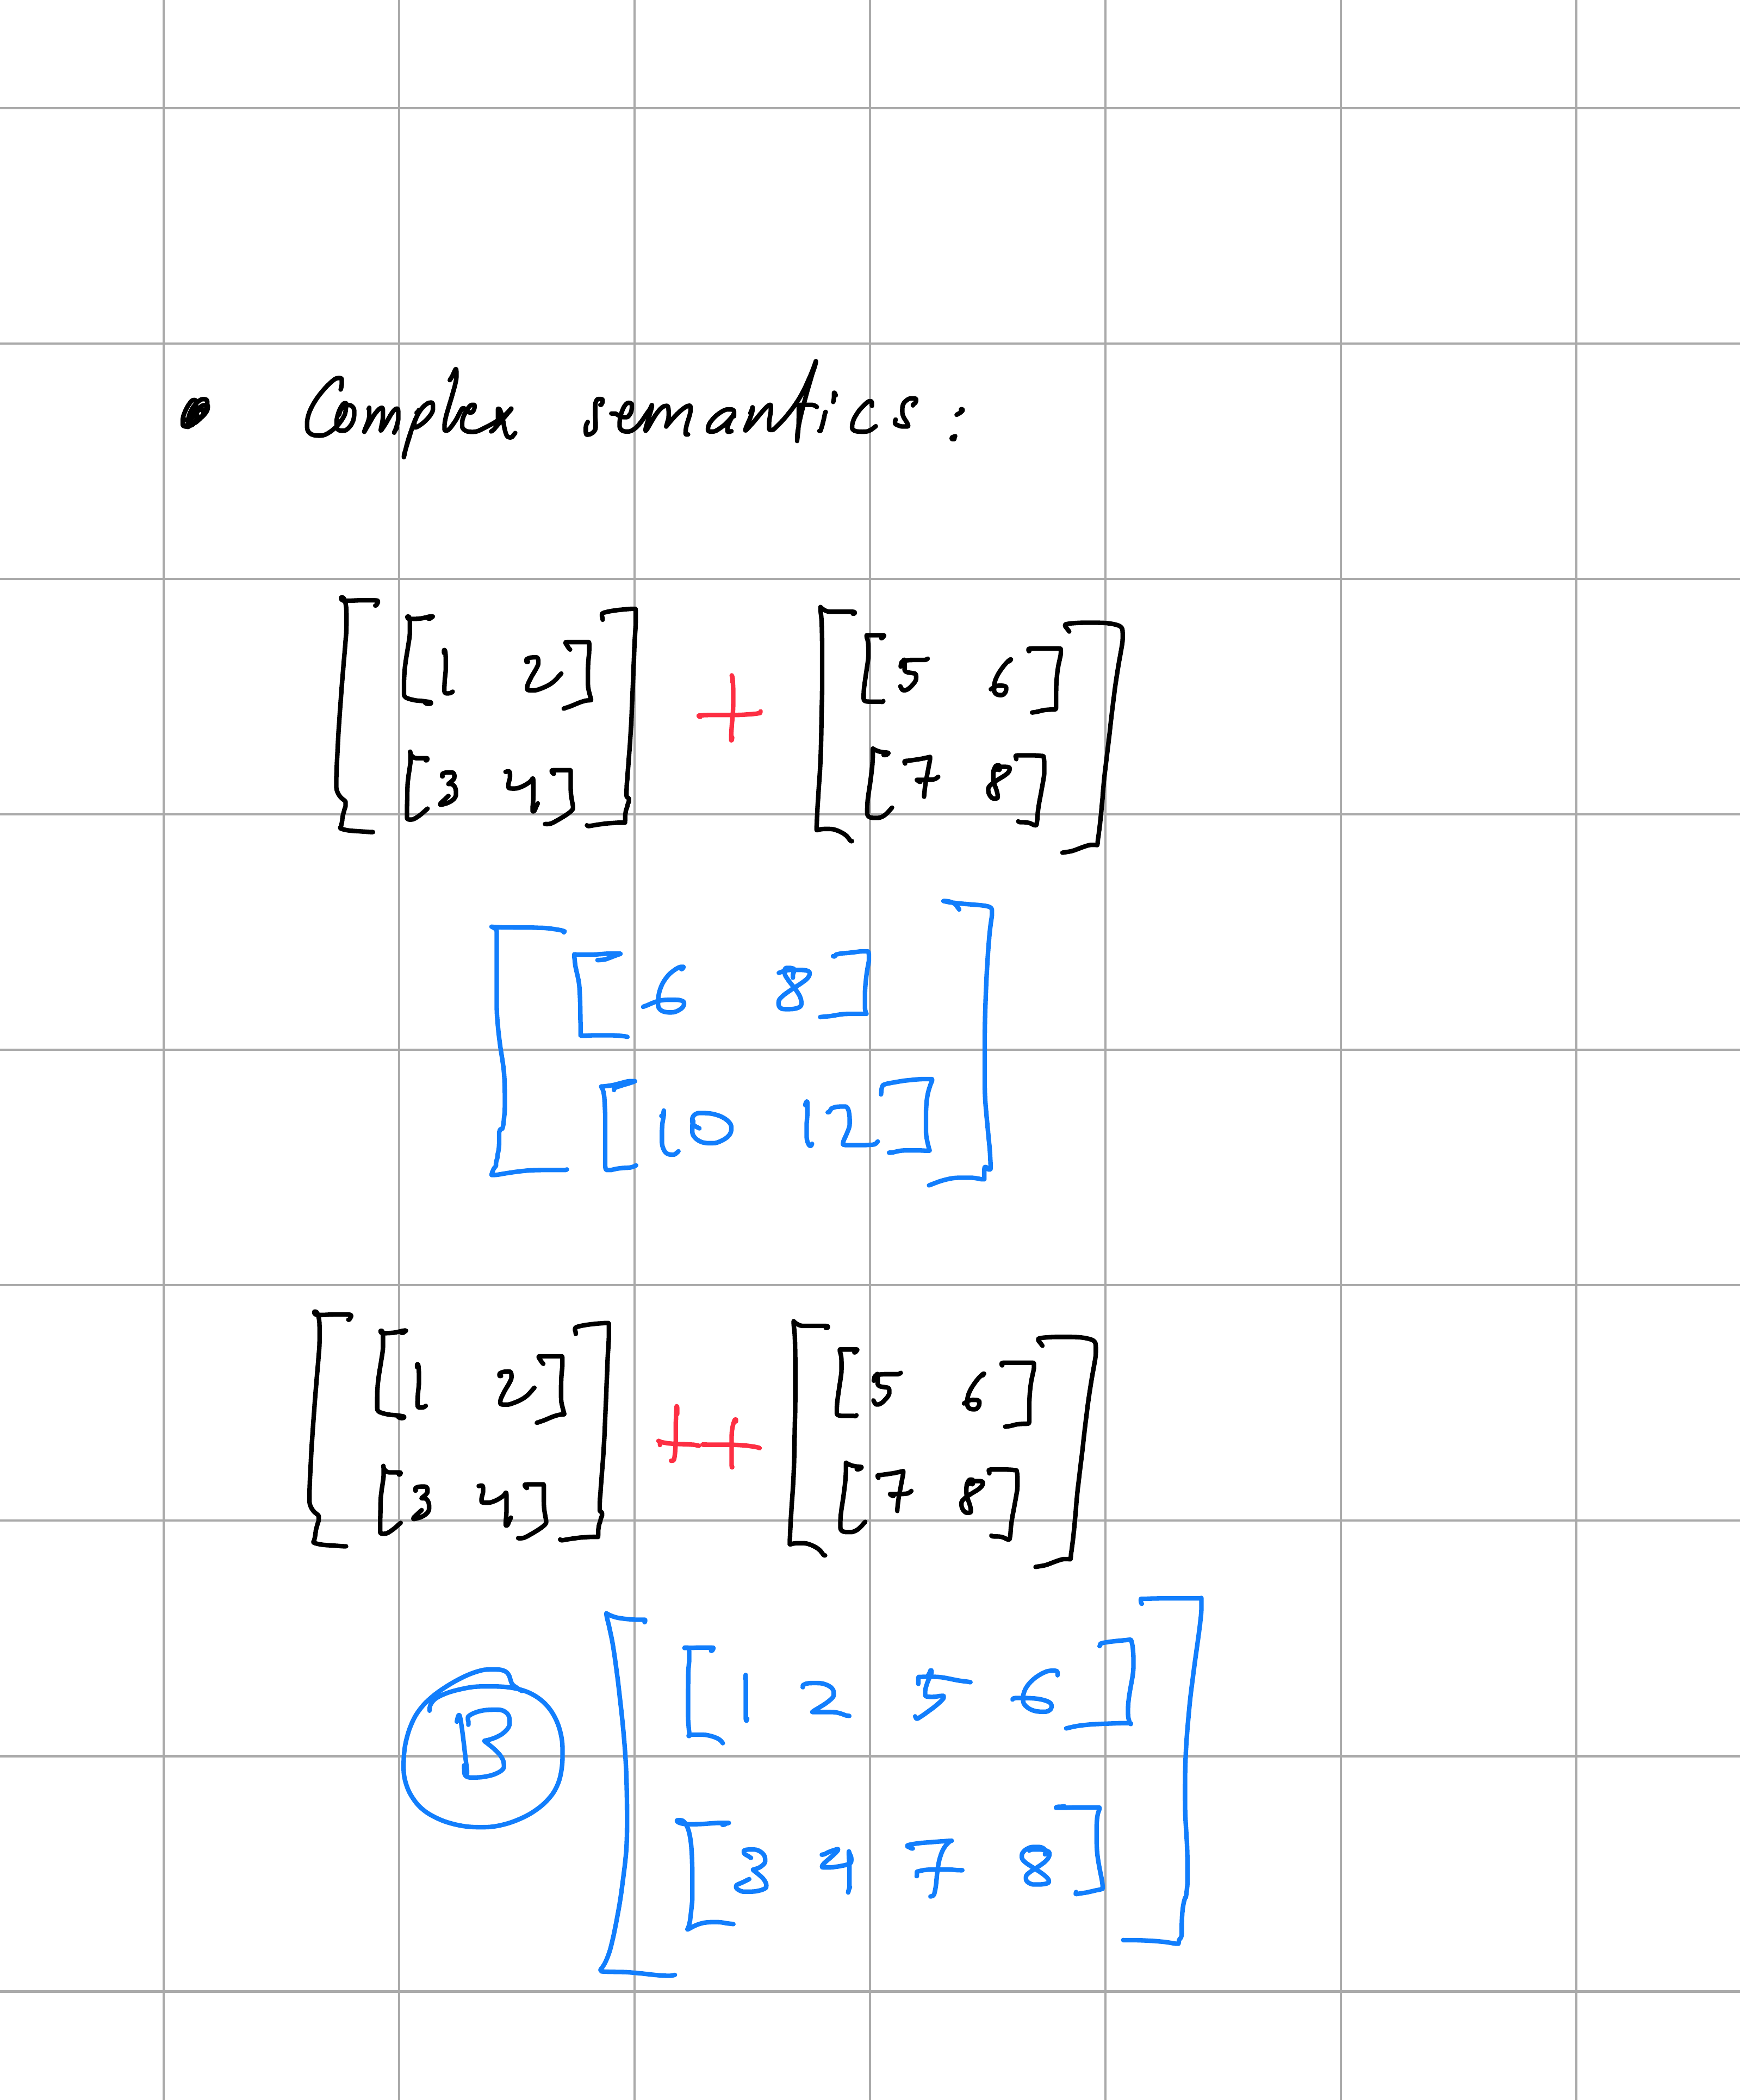 • Complex semantics:
[[1 2] + [[5 6]
[3 4]] [7 8]]
[[6 8]
[10 12]]
[[1 2] ++ [[5 6]
[3 4]] [7 8]]
B [[1 2 5 6]
[3 4 7 8]]